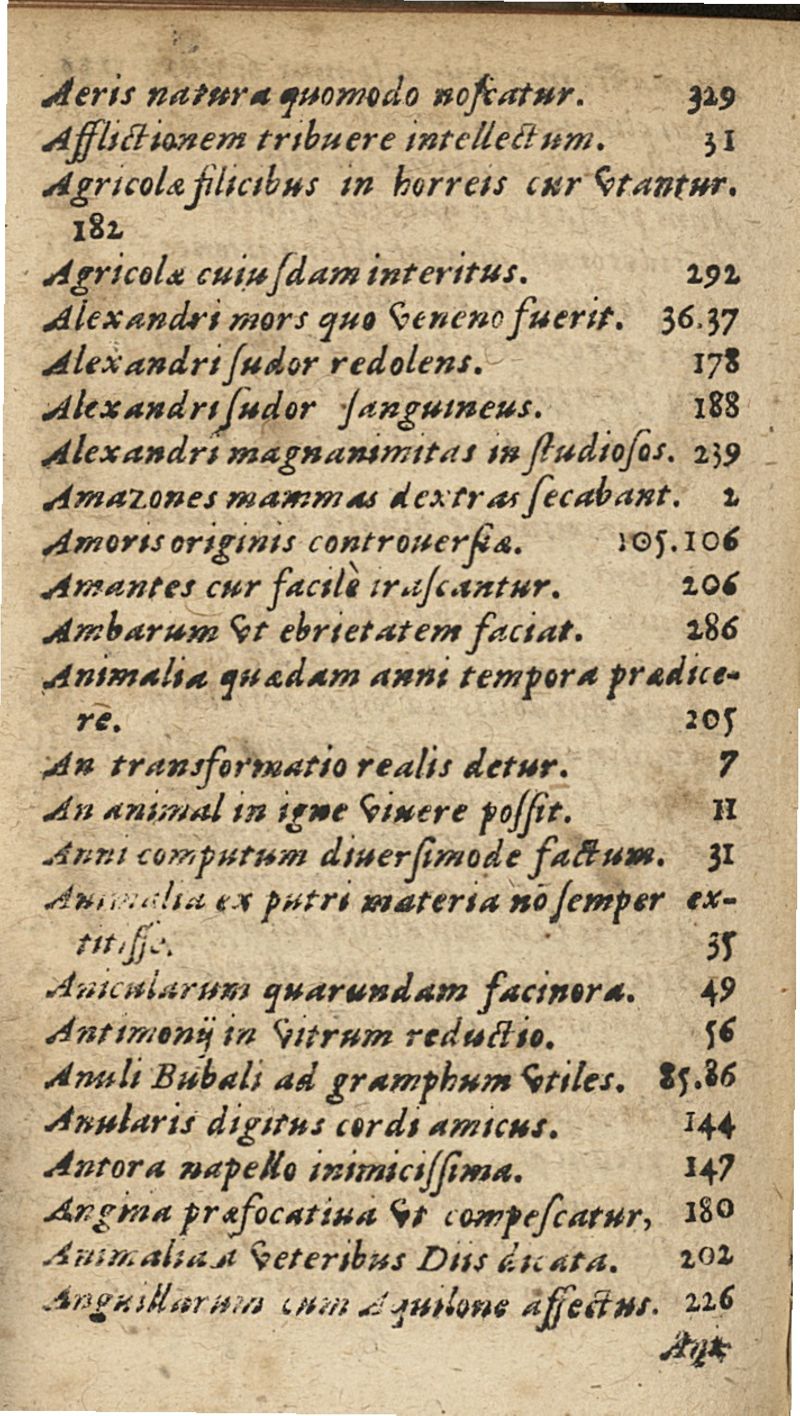 Aeris natura quomodo noſcatur. 329
Afflictionem tribuere intellectum. 31
Agricolæ filicibus in horreis cur vtantur.
182
Agricolæ cuiuſdam interitus. 292
Alexandri mors quo veneno fuerit. 36.37
Alexandri ſudor redolens. 178
Alexandri ſudor ſanguineus. 188
Alexandri magnanimitas in ſtudioſos. 239
Amazones mammas dextras ſecabant. 2
Amoris originis controuerſiæ. 105.106
Amantes cur facilè iraſcantur. 206
Ambarum vt ebrietatem faciat. 286
Animalia quædam anni tempora prædice-
re. 205
An transformatio realis detur. 7
An animal in igne viuere poſſit. 11
Anni computum diuerſimode factum. 31
Animalia ex putri materia nō ſemper ex-
titiſſe. 35
Anicularum quarundam facinora. 49
Antimonij in vitrum reductio. 56
Anuli Bubali ad gramphum vtiles. 85.86
Anularis digitus cordi amicus. 144
Antora napello inimiciſſima. 147
Angina præfocatiua vt compeſcatur, 180
Animalia a veteribus Diis dicata. 202
Anguillarum cum Aquilone affectus. 226